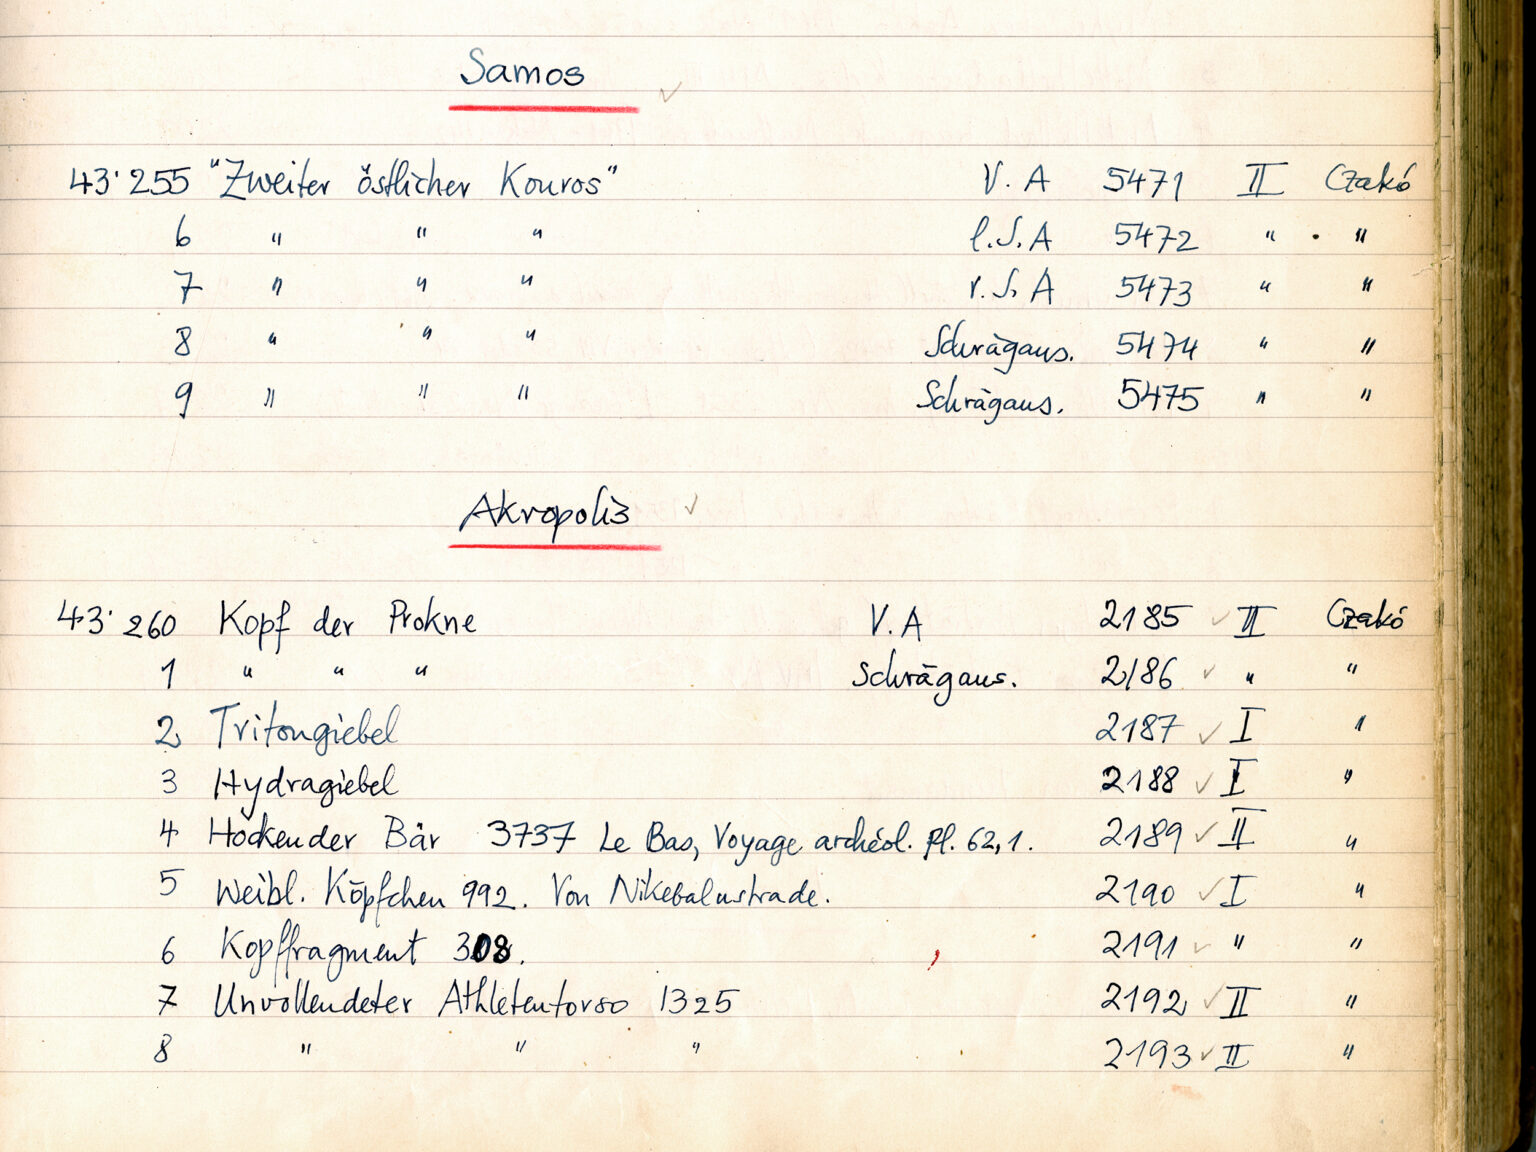 Samos ✓
43'255 "Zweiter östlicher Kouros" V. A 5471 II Czakó
6 " " " l. S. A 5472 " "
7 " " " r. S. A 5473 " "
8 " " " Schrägaus. 5474 " "
9 " " " Schrägaus. 5475 " "
Akropolis ✓
43'260 Kopf der Prokne V. A 2185 ✓ II Czakó
1 " " " Schrägaus. 2186 ✓ " "
2 Tritongiebel 2187 ✓ I "
3 Hydragiebel 2188 ✓ I "
4 Hockender Bär 3737 Le Bas, Voyage archéol. Pl. 62,1. 2189 ✓ II "
5 Weibl. Köpfchen 992. Von Nikebalustrade. 2190 ✓ I "
6 Kopffragment 308. 2191 ✓ " "
7 Unvollendeter Athletentorso 1325 2192 ✓ II "
8 " " " 2193 ✓ II "